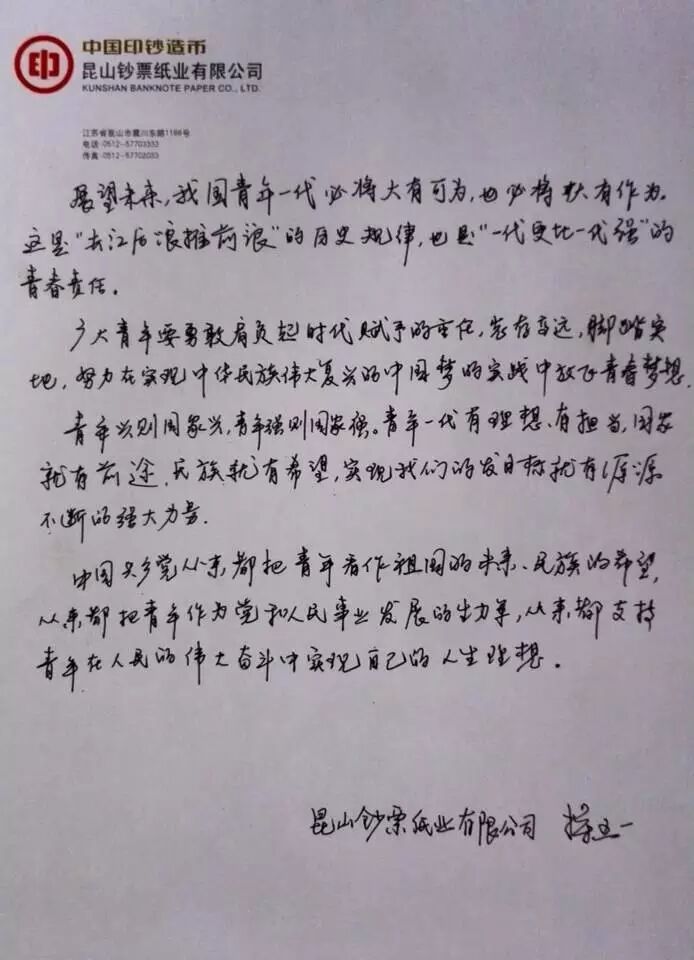 中国印钞造币
昆山钞票纸业有限公司
KUNSHAN BANKNOTE PAPER CO., LTD.
江苏省昆山市震川东路1188号
电话:0512-57703333
传真:0512-57702033
展望未来,我国青年一代必将大有可为,也必将大有作为。
这是“长江后浪推前浪”的历史规律,也是“一代更比一代强”的
青春责任。
广大青年要勇敢肩负起时代赋予的重任,志存高远,脚踏实
地,努力在实现中华民族伟大复兴的中国梦的实践中放飞青春梦想.
青年兴则国家兴,青年强则国家强。青年一代有理想、有担当,国家
就有前途,民族就有希望,实现我们的发目标就有源源
不断的强大力量.
中国共产党从来都把青年看作祖国的未来、民族的希望,
从来都把青年作为党和人民事业发展的生力军,从来都支持
青年在人民的伟大奋斗中实现自己的人生理想。
昆山钞票纸业有限公司